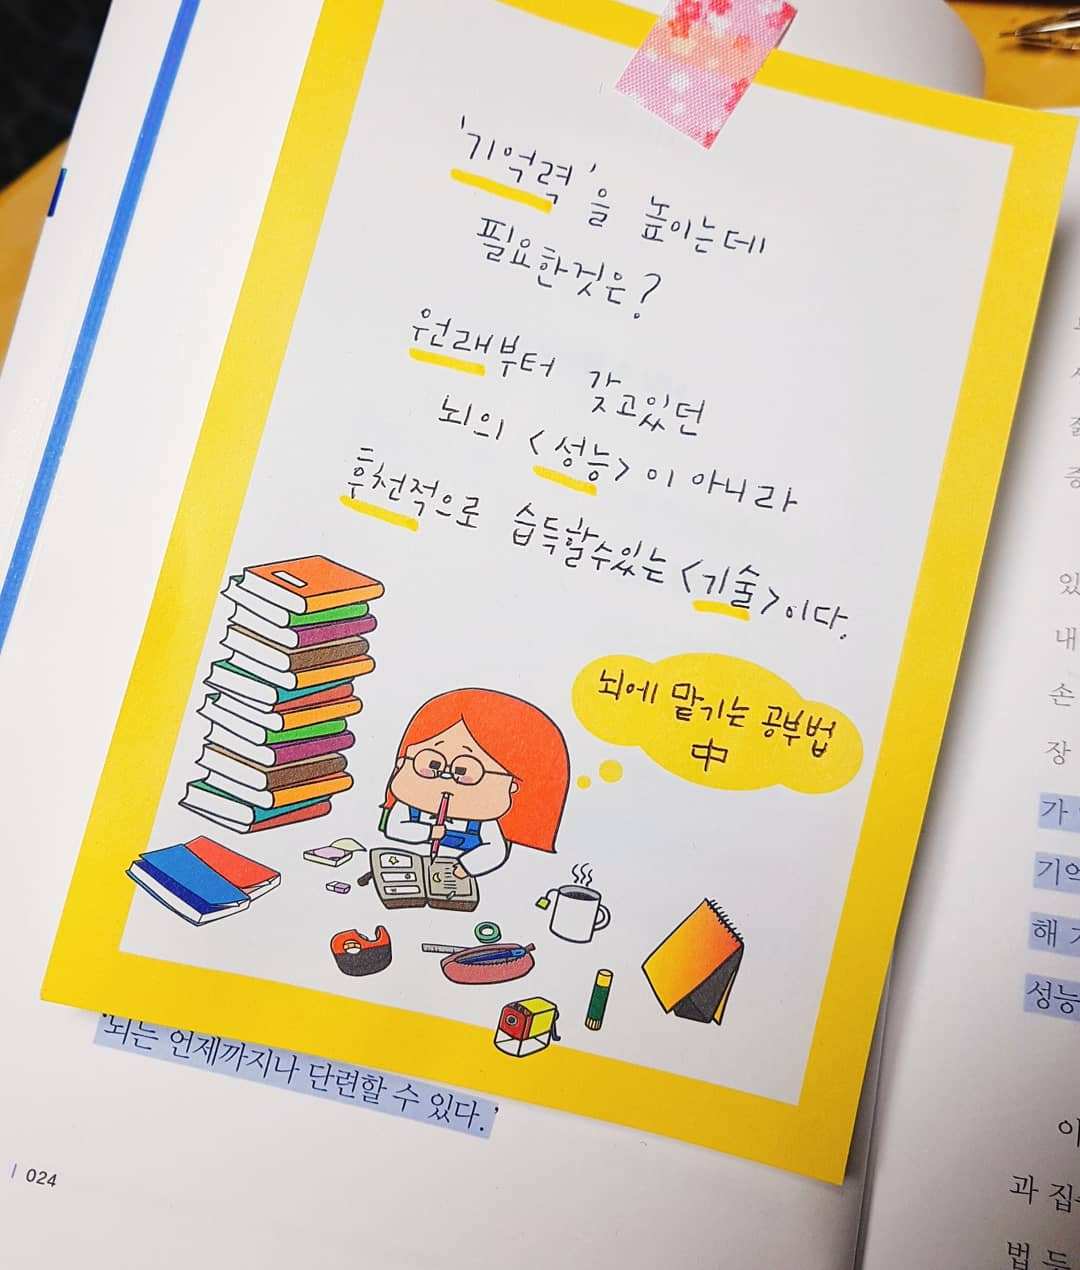 '기억력'을 높이는데
필요한것은?
원래부터 갖고있던
뇌의 <성능>이 아니라
후천적으로 습득할수있는 <기술>이다.
뇌에 맡기는 공부법
中
'뇌는 언제까지나 단련할 수 있다.'
024
있
내
손
장
가
기억
해
성능
이
과 집
법 두